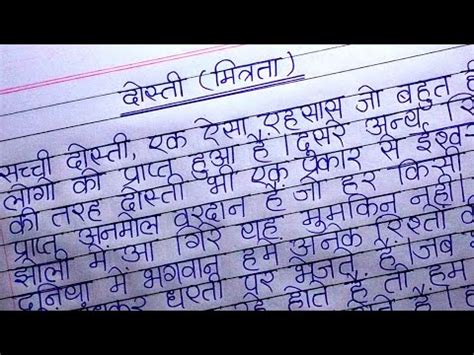 दोस्ती (मित्रता)
सच्ची दोस्ती, एक ऐसा एहसास जो बहुत ही
लोगो को प्राप्त हुआ है। दूसरे अन्थ,
की तरह दोस्ती भी एक प्रकार से ईश्व-
प्राप्त अनमोल वरदान है जो हर किसी
झोली में आ गिरे यह मुमकिन नही।
दुनिया में भगवान हमे अनेक रिश्तो
धरती पर भेजते है। जब
होते है तो हम